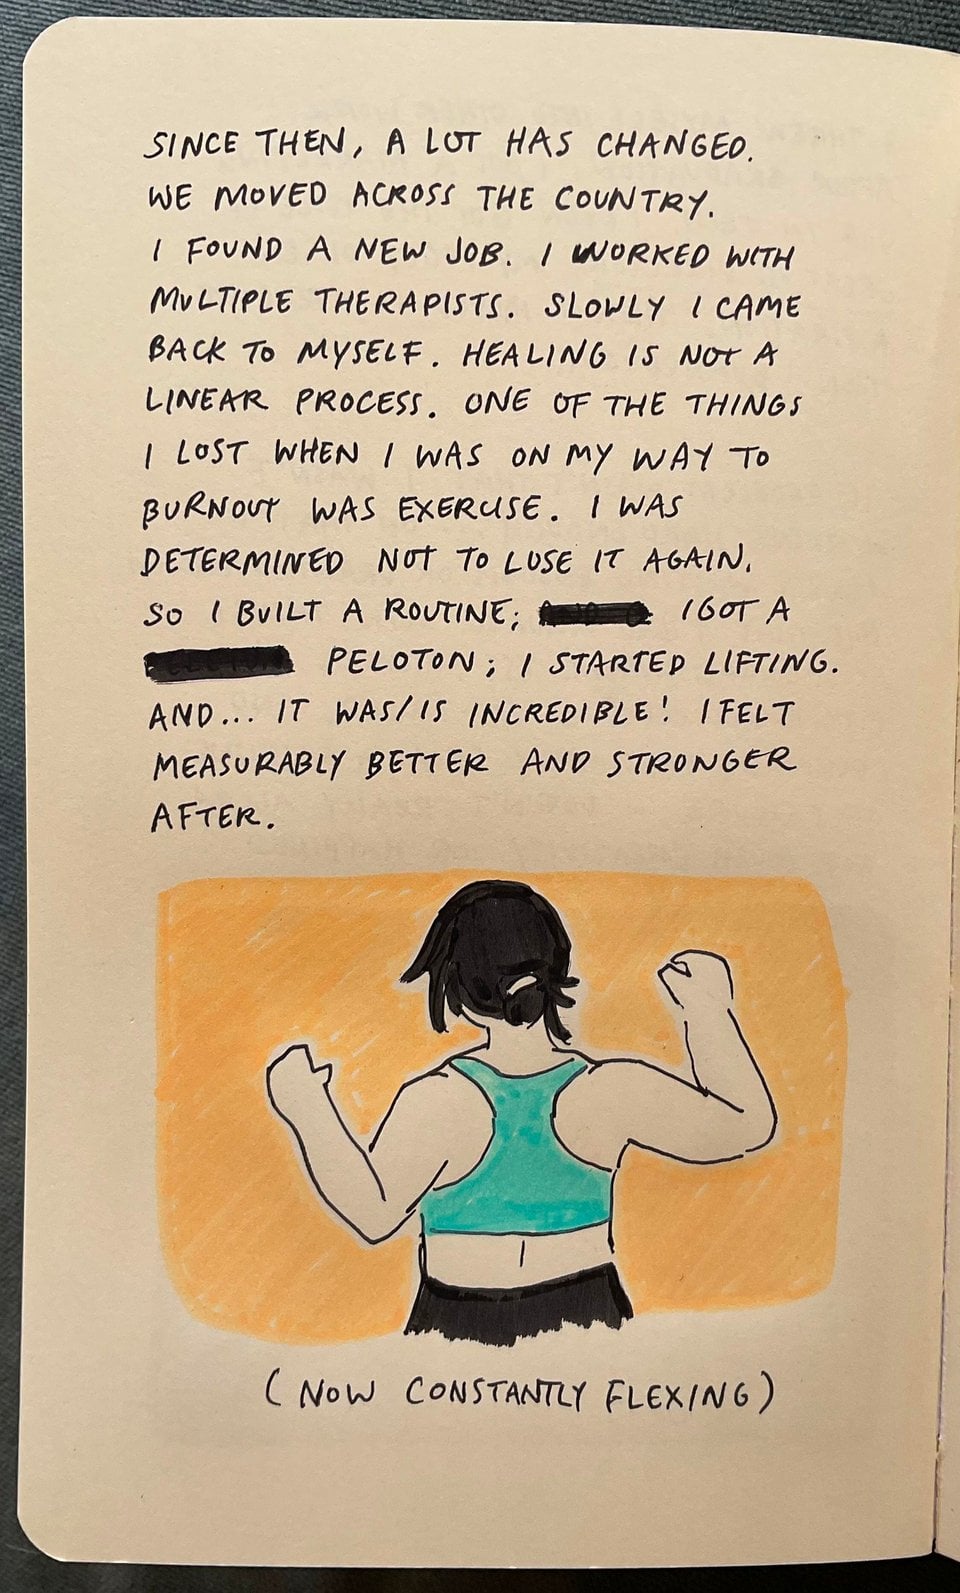 SINCE THEN, A LOT HAS CHANGED.
WE MOVED ACROSS THE COUNTRY.
I FOUND A NEW JOB. I WORKED WITH
MULTIPLE THERAPISTS. SLOWLY I CAME
BACK TO MYSELF. HEALING IS NOT A
LINEAR PROCESS. ONE OF THE THINGS
I LOST WHEN I WAS ON MY WAY TO
BURNOUT WAS EXERCISE. I WAS
DETERMINED NOT TO LOSE IT AGAIN.
SO I BUILT A ROUTINE; I GOT A
PELOTON; I STARTED LIFTING.
AND... IT WAS/IS INCREDIBLE! I FELT
MEASURABLY BETTER AND STRONGER
AFTER.
(NOW CONSTANTLY FLEXING)